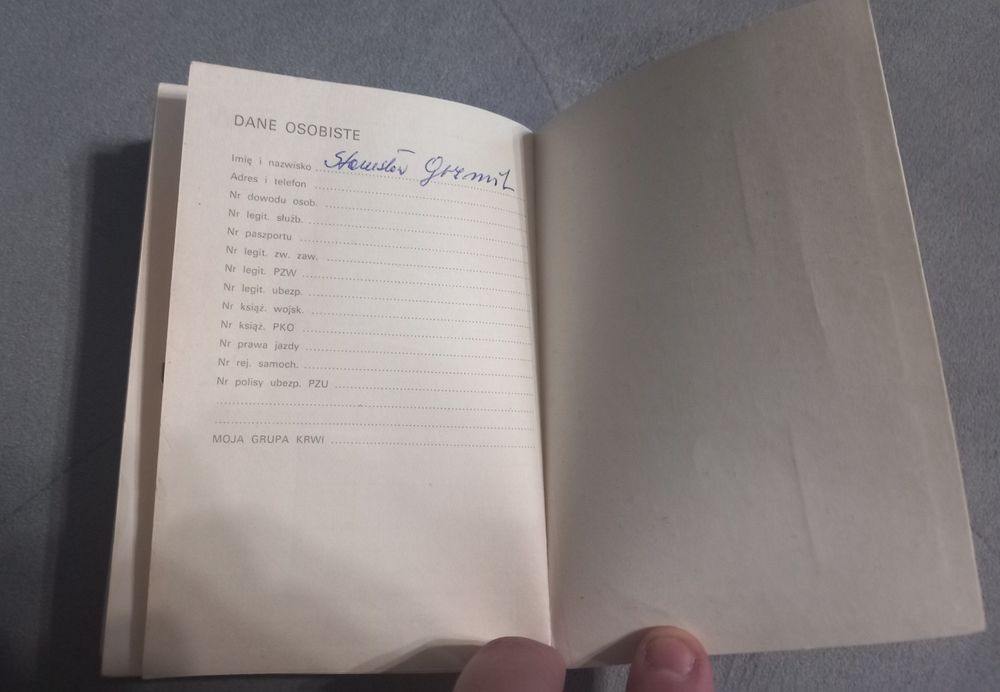 DANE OSOBISTE
Imię i nazwisko Stanisław Grzmil
Adres i telefon
Nr dowodu osob.
Nr legit. służb.
Nr paszportu
Nr legit. zw. zaw.
Nr legit. PZW
Nr legit. ubezp.
Nr książ. wojsk.
Nr książ. PKO
Nr prawa jazdy
Nr rej. samoch.
Nr polisy ubezp. PZU
MOJA GRUPA KRWI